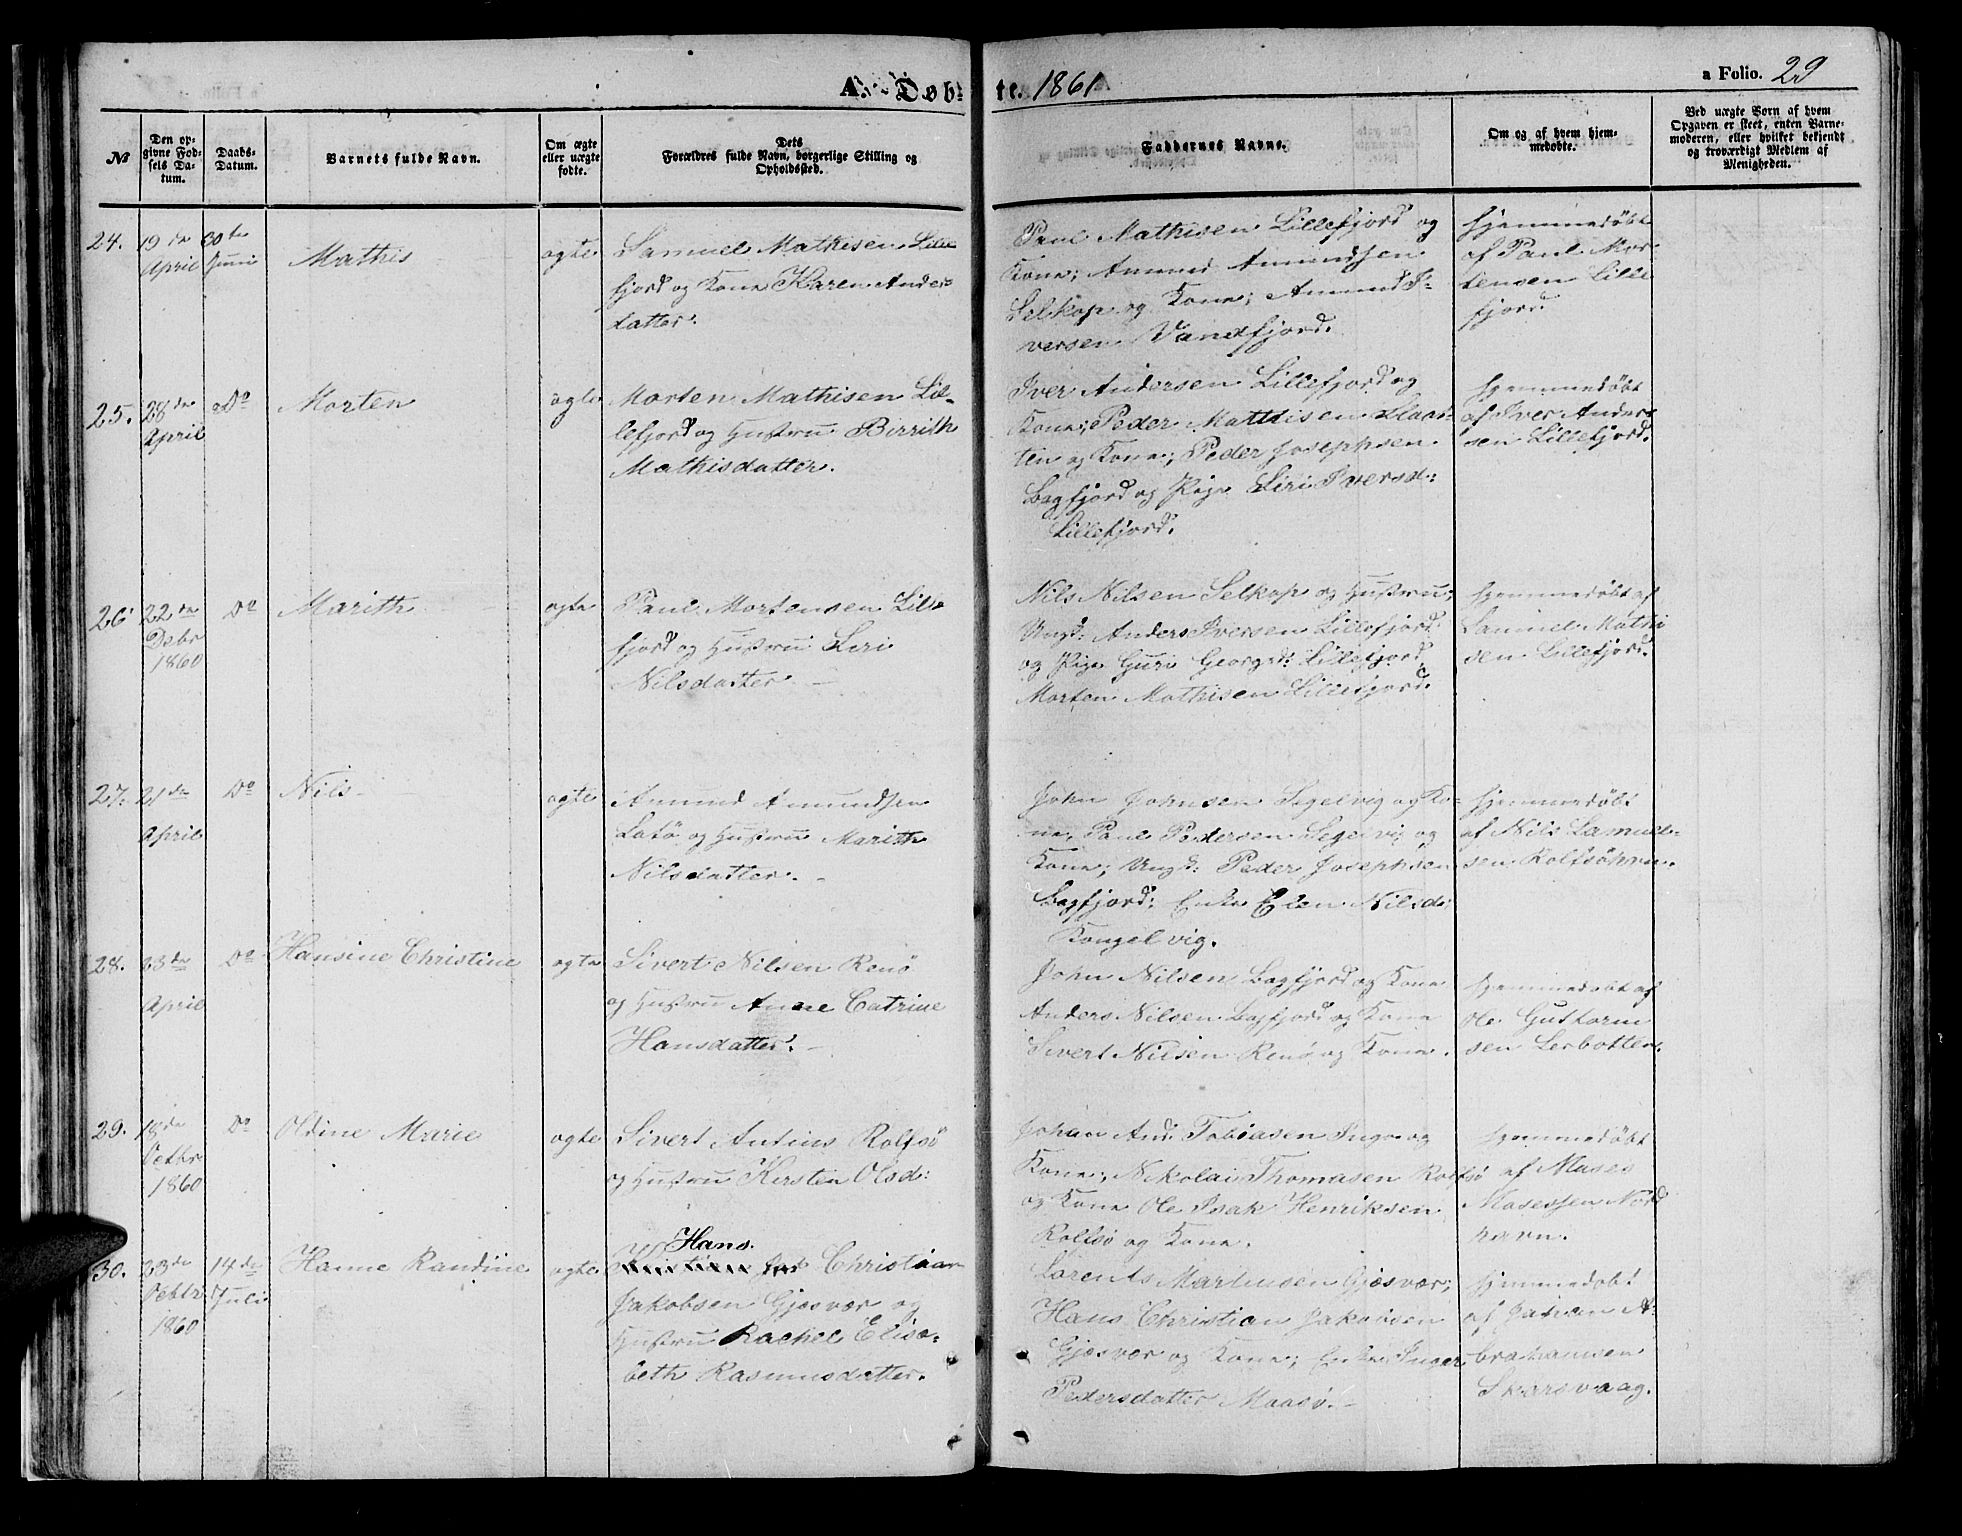 A. Døb-
te. 1861
a Folio. 29
№
Den op-
givne Fød-
sels Da-
tum.
Daabs-
Datum.
Barnets fulde Navn.
Om ægte
eller uægte
fødte.
Dets
Forældres fulde Navn, borgerlige Stilling og
Opholdssted.
Faddernes Navne.
Om og af hvem hjem-
medøbte.
Ved uægte Børn af hvem
Opgaven er skeet, enten Barne-
moderen, eller hvilket bekjendt
og troværdigt Medlem af
Menigheden.
24.
19de
April
30te
Juni
Mathis
ægte
Samuel Mathisen Lille
fjord og Kone Karen Anders
datter.
Paul Mathisen Lillefjord og
Kone; Amund Amundsen
Selkop og Kone; Amund I-
versen Vandfjord.
Hjemmedøbt
af Paul Mor
tensen Lille
fjord.
25.
28de
April
Do
Morten
ægte
Morten Mathisen Lil-
lefjord og Hustru Birrith
Mathisdatter.
Iver Andersen Lillefjord og
Kone; Peder Mathisen
og Kone; Peder Josephsen
Bagfjord og Pige Siri Iversd:
Lillefjord.
Hjemmedøbt
af Iver Ander
sen Lillefjord.
26
22de
Debr
1860
Do
Marith
ægte
Paul Mortensen Lille
fjord og Hustru Siri
Nilsdatter. –
Nils Nilsen Selkop og Hustru;
Ungk: Anders Iversen Lillefjord
og Pige Guri Georgsd: Lillefjord,
Morten Mathisen Lillefjord.
Hjemmedøbt af
Samuel Mathi
sen Lillefjord.
27.
21de
April
Do
Nils
ægte
Amund Amundsen
Latø og Hustru Marith
Nilsdatter. –
John Johnsen Segelvig og Ko-
ne, Paul Pedersen Segelvig og
Kone; Ungk: Peder Josephsen
Bagfjord; Enke Elen Nilsd:
Kongelvig.
Hjemmedøbt
af Nils Samuel-
sen Rolfsøhavn.
28.
23de
April
Do
Hansine Christine
ægte
Sivert Nilsen Renø
og Hustru Anne Catrine
Hansdatter. –
John Nilsen Bagfjord og Kone
Anders Nilsen Bagfjord og Kone
Sivert Nilsen Renø og Kone.
Hjemmedøbt af
Ole Guttorm
sen Lerbotten.
29.
18de
Octbr
1860
Do
Oldine Marie
ægte
Sivert Antius Rolfsø
og Hustru Kirsten Olsd:
Johan And: Tobiasen Ingø og
Kone; Nikolai Thomasen Rolfsø
og Kone Ole Isak Henriksen
Rolfsø og Kone.
Hjemmedøbt
af Moses
Mosessen Nord
havn.
30.
23de
Octbr
1860
14de
Juli
Hanne Randine
ægte
Hans
Christian
Jakobsen Gjesvær og
Hustru Rachel Elisa-
beth Rasmusdatter.
Lorents Martinsen Gjesvær;
Hans Christian Jakobsen
Gjesvær og Kone; Enke Inger
Pedersdatter Maasø. –
Hjemmedøbt
af Johan A-
brahamsen
Skarsvaag.